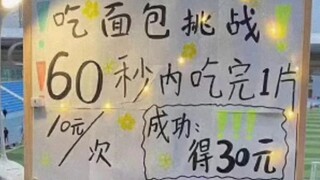 吃面包挑战
60秒内吃完1片
10元/次
成功:
得30元